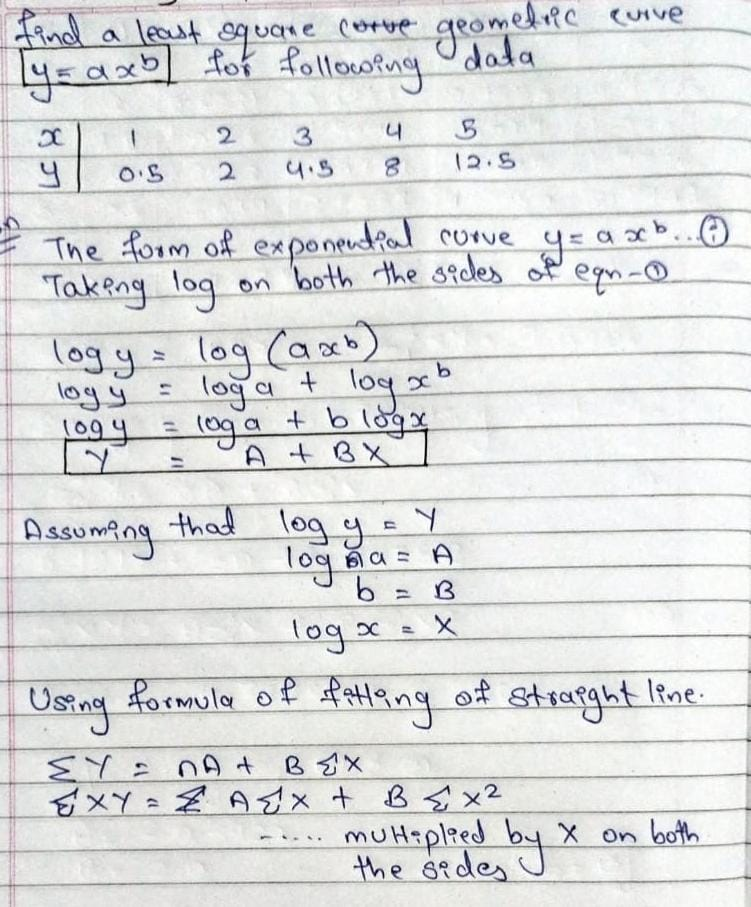 find a least square curve geometric curve
y = ax^b for following data
x | 1 2 3 4 5
y | 0.5 2 4.5 8 12.5
The form of exponential curve y = a x^b .. ①
Taking log on both the sides of eqn - ①
log y = log (ax^b)
log y = log a + log x^b
log y = log a + b log x
Y = A + BX
Assuming that log y = Y
log a = A
b = B
log x = X
Using formula of fitting of straight line.
ΣY = nA + BΣX
ΣXY = AΣX + BΣX²
..... multiplied by X on both
the sides